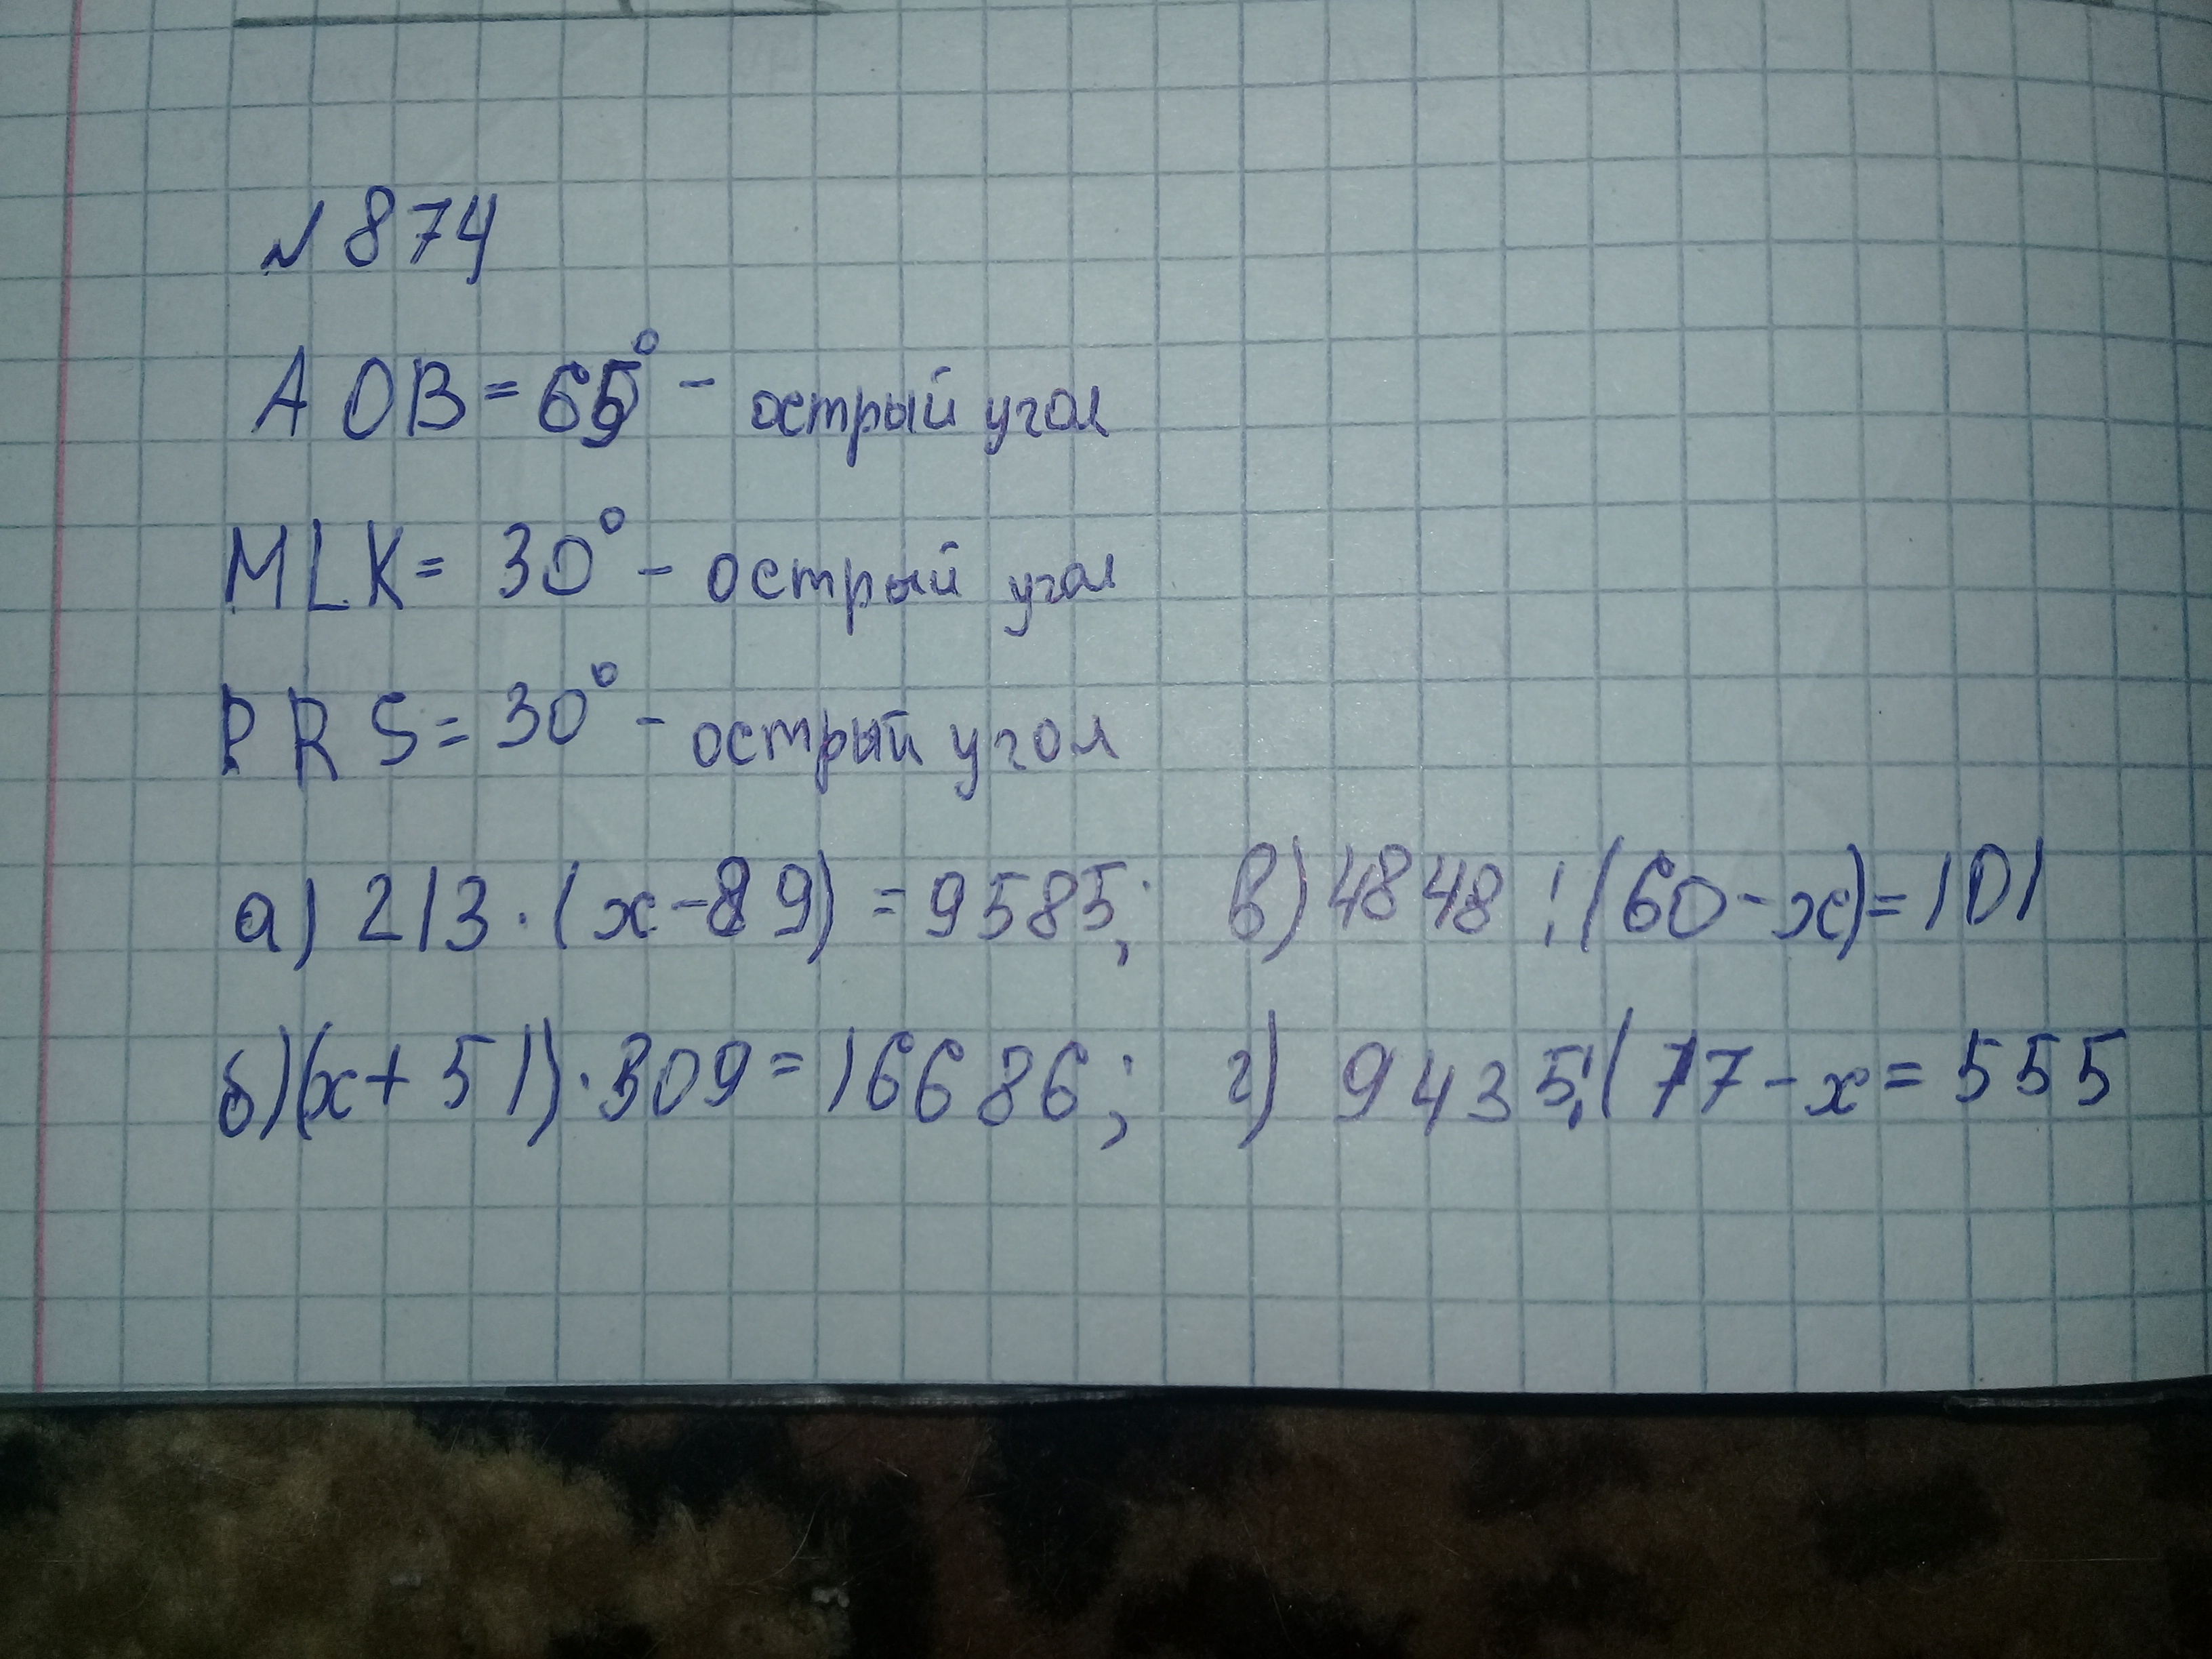 № 874
AOB = 65° - острый угол
MLK = 30° - острый угол
PRS = 30° - острый угол
а) 213 · (x - 89) = 9585; в) 4848 : (60 - x) = 101
б) (x + 51) · 309 = 16686; г) 9435 : (77 - x = 555